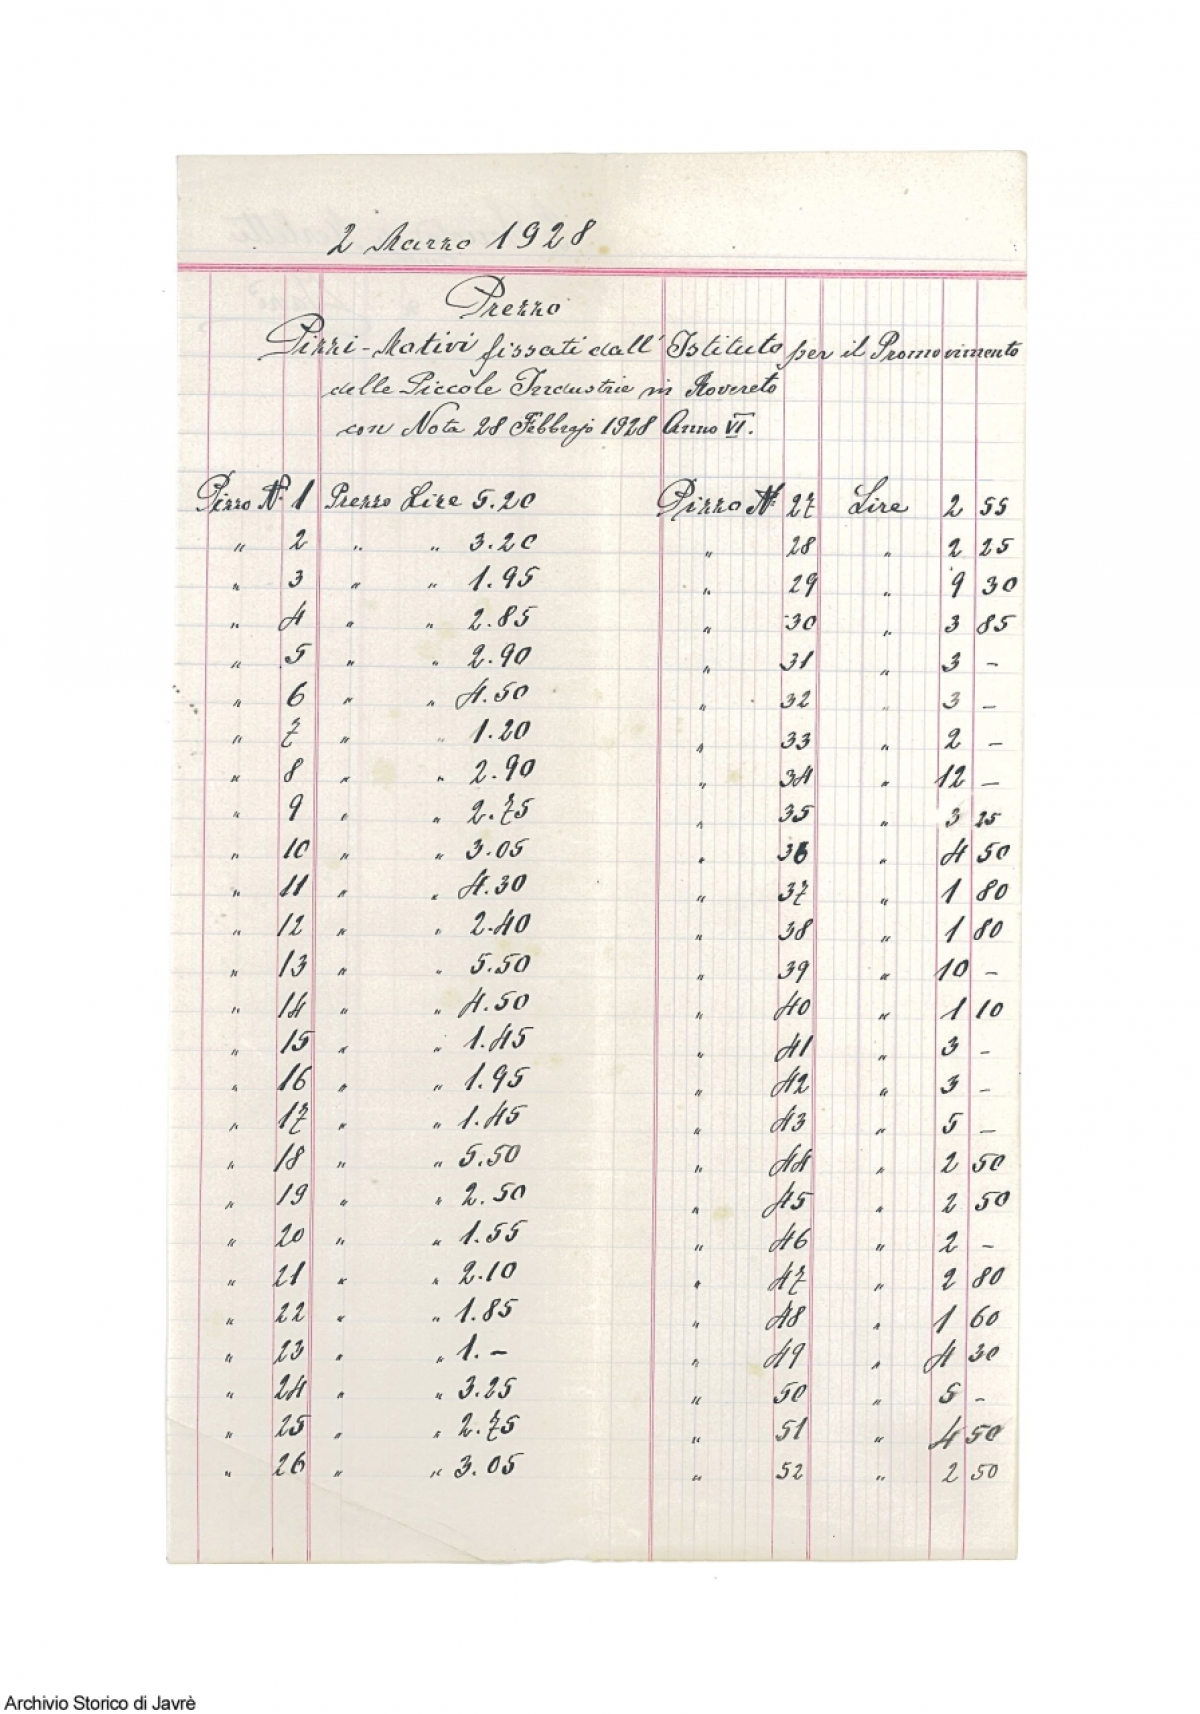 2 Marzo 1928
Prezzo
Pizzi-Motivi fissati dall' Istituto per il Promovimento
delle Piccole Industrie in Rovereto
con Nota 28 Febbrajo 1928 Anno VI.
Pizzo N. 1 Prezzo Lire 5.20
" 2 " " 3.20
" 3 " " 1.95
" 4 " " 2.85
" 5 " " 2.90
" 6 " " 4.50
" 7 " " 1.20
" 8 " " 2.90
" 9 " " 2.75
" 10 " " 3.05
" 11 " " 4.30
" 12 " " 2.40
" 13 " " 5.50
" 14 " " 4.50
" 15 " " 1.45
" 16 " " 1.95
" 17 " " 1.45
" 18 " " 5.50
" 19 " " 2.50
" 20 " " 1.55
" 21 " " 2.10
" 22 " " 1.85
" 23 " " 1.-
" 24 " " 3.25
" 25 " " 2.75
" 26 " " 3.05
Pizzo N. 27 Lire 2 55
" 28 " 2 25
" 29 " 9 30
" 30 " 3 85
" 31 " 3 -
" 32 " 3 -
" 33 " 2 -
" 34 " 12 -
" 35 " 3 25
" 36 " 4 50
" 37 " 1 80
" 38 " 1 80
" 39 " 10 -
" 40 " 1 10
" 41 " 3 -
" 42 " 3 -
" 43 " 5 -
" 44 " 2 50
" 45 " 2 50
" 46 " 2 -
" 47 " 2 80
" 48 " 1 60
" 49 " 4 30
" 50 " 5 -
" 51 " 4 50
" 52 " 2 50
Archivio Storico di Javrè